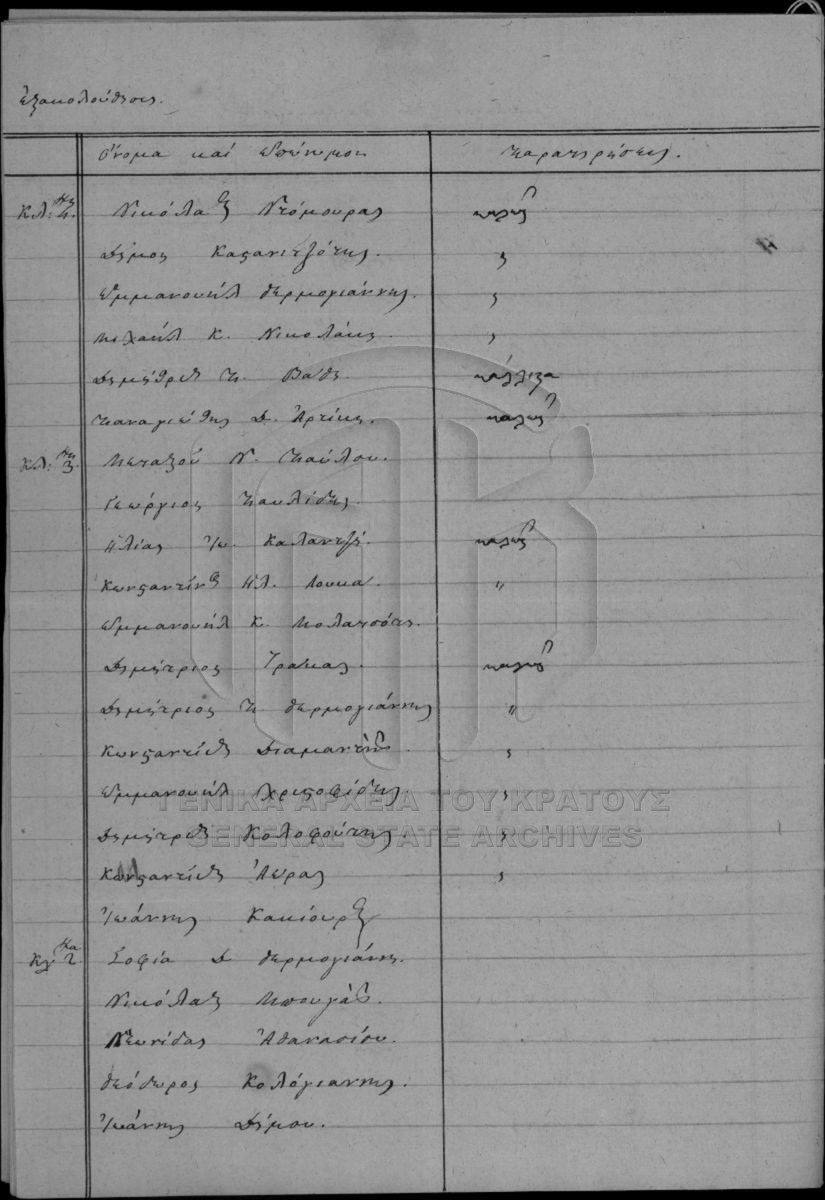 ἐξακολούθησις.
Ὄνομα καὶ ἐπώνυμον Παρατηρήσεις.
Κλ: 4. Νικόλαος Ντόμουρας καλῶς
Δῆμος Καςανιτζότης. "
Ἐμμανουὴλ Θερμογιάννης. "
Μιχαὴλ Κ. Νικολάκη. "
Δημήτριος Π. Βάθη. κάλλιςα
Παναγιώτης Δ. Ἀρτίκη. καλῶς
Κλ: 3. Μεταξοῦ Ν. Παύλου.
Γεώργιος Παυλίδης.
Ἠλίας Ἰω. Καλαντζῆ. καλῶς
Κωνςαντῖνος Ἠλ. Λουκᾶ. "
Ἐμμανουὴλ Κ. Μολατσότη.
Δημήτριος Τράκας. καλῶς
Δημήτριος Π. Θερμογιάννης "
Κωνςαντῖνος Διαμαντῆς. "
Ἐμμανουὴλ Χριςοφίδης. "
Δημήτριος Κολοφούτης. "
Κωνςαντῖνος Λύρας "
Ἰωάννης
Κλ 2. Σοφία Δ Θερμογιάννη.
Νικόλαος
Λεωνίδας Ἀθανασίου.
Θεόδωρος Κολόγιαννης.
Ἰωάννης Δήμου.
ΓΕΝΙΚΑ ΑΡΧΕΙΑ ΤΟΥ ΚΡΑΤΟΥΣ
GENERAL STATE ARCHIVES